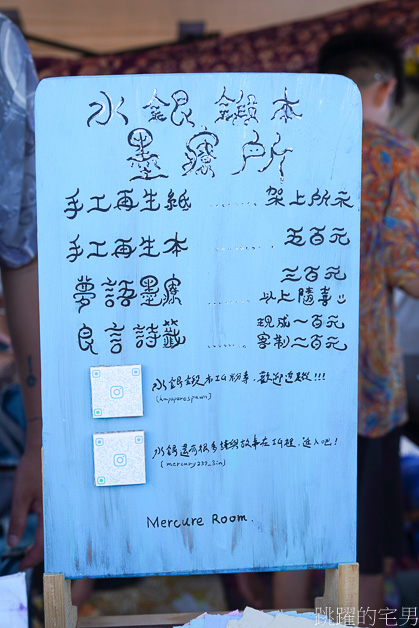 水銀鍛本
墨療所
手工再生紙 ...... 架上所示
手工再生本 ...... 五百元
夢語墨療 ...... 三百元
以上隨喜
良言詩籤 ...... 現成一百元
客製二百元
水銀鍛本IG粉專，歡迎追蹤!!!
水銀還有很多 故事在IG裡，進入吧!
(mercury237_3in)
Mercure Room.
跳躍的宅男